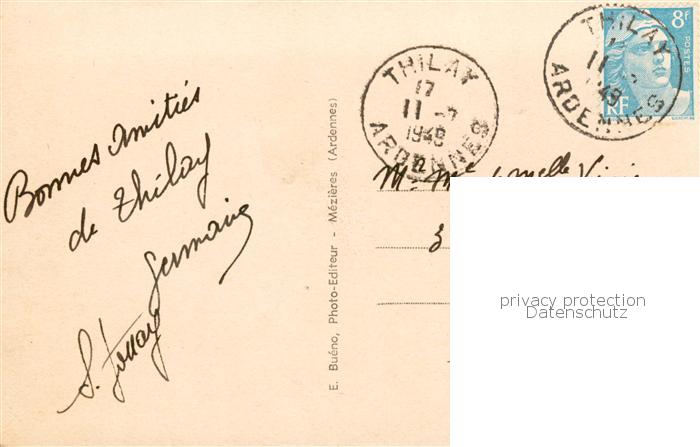 Bonnes Amitiés
de Thilay
Germaine
E. Buéno, Photo-Editeur - Mézières (Ardennes)
THILAY
17
11 -7
1949
ARDENNES
THILAY
11
ARDENNES
8F
POSTES
RF
Mr Mme & Melle
3
privacy protection
Datenschutz